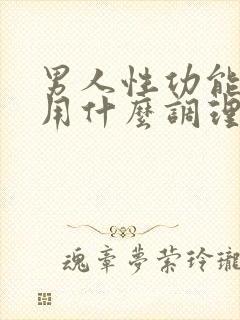 男人性功能
用什麼調理
魂牽夢縈玲瓏